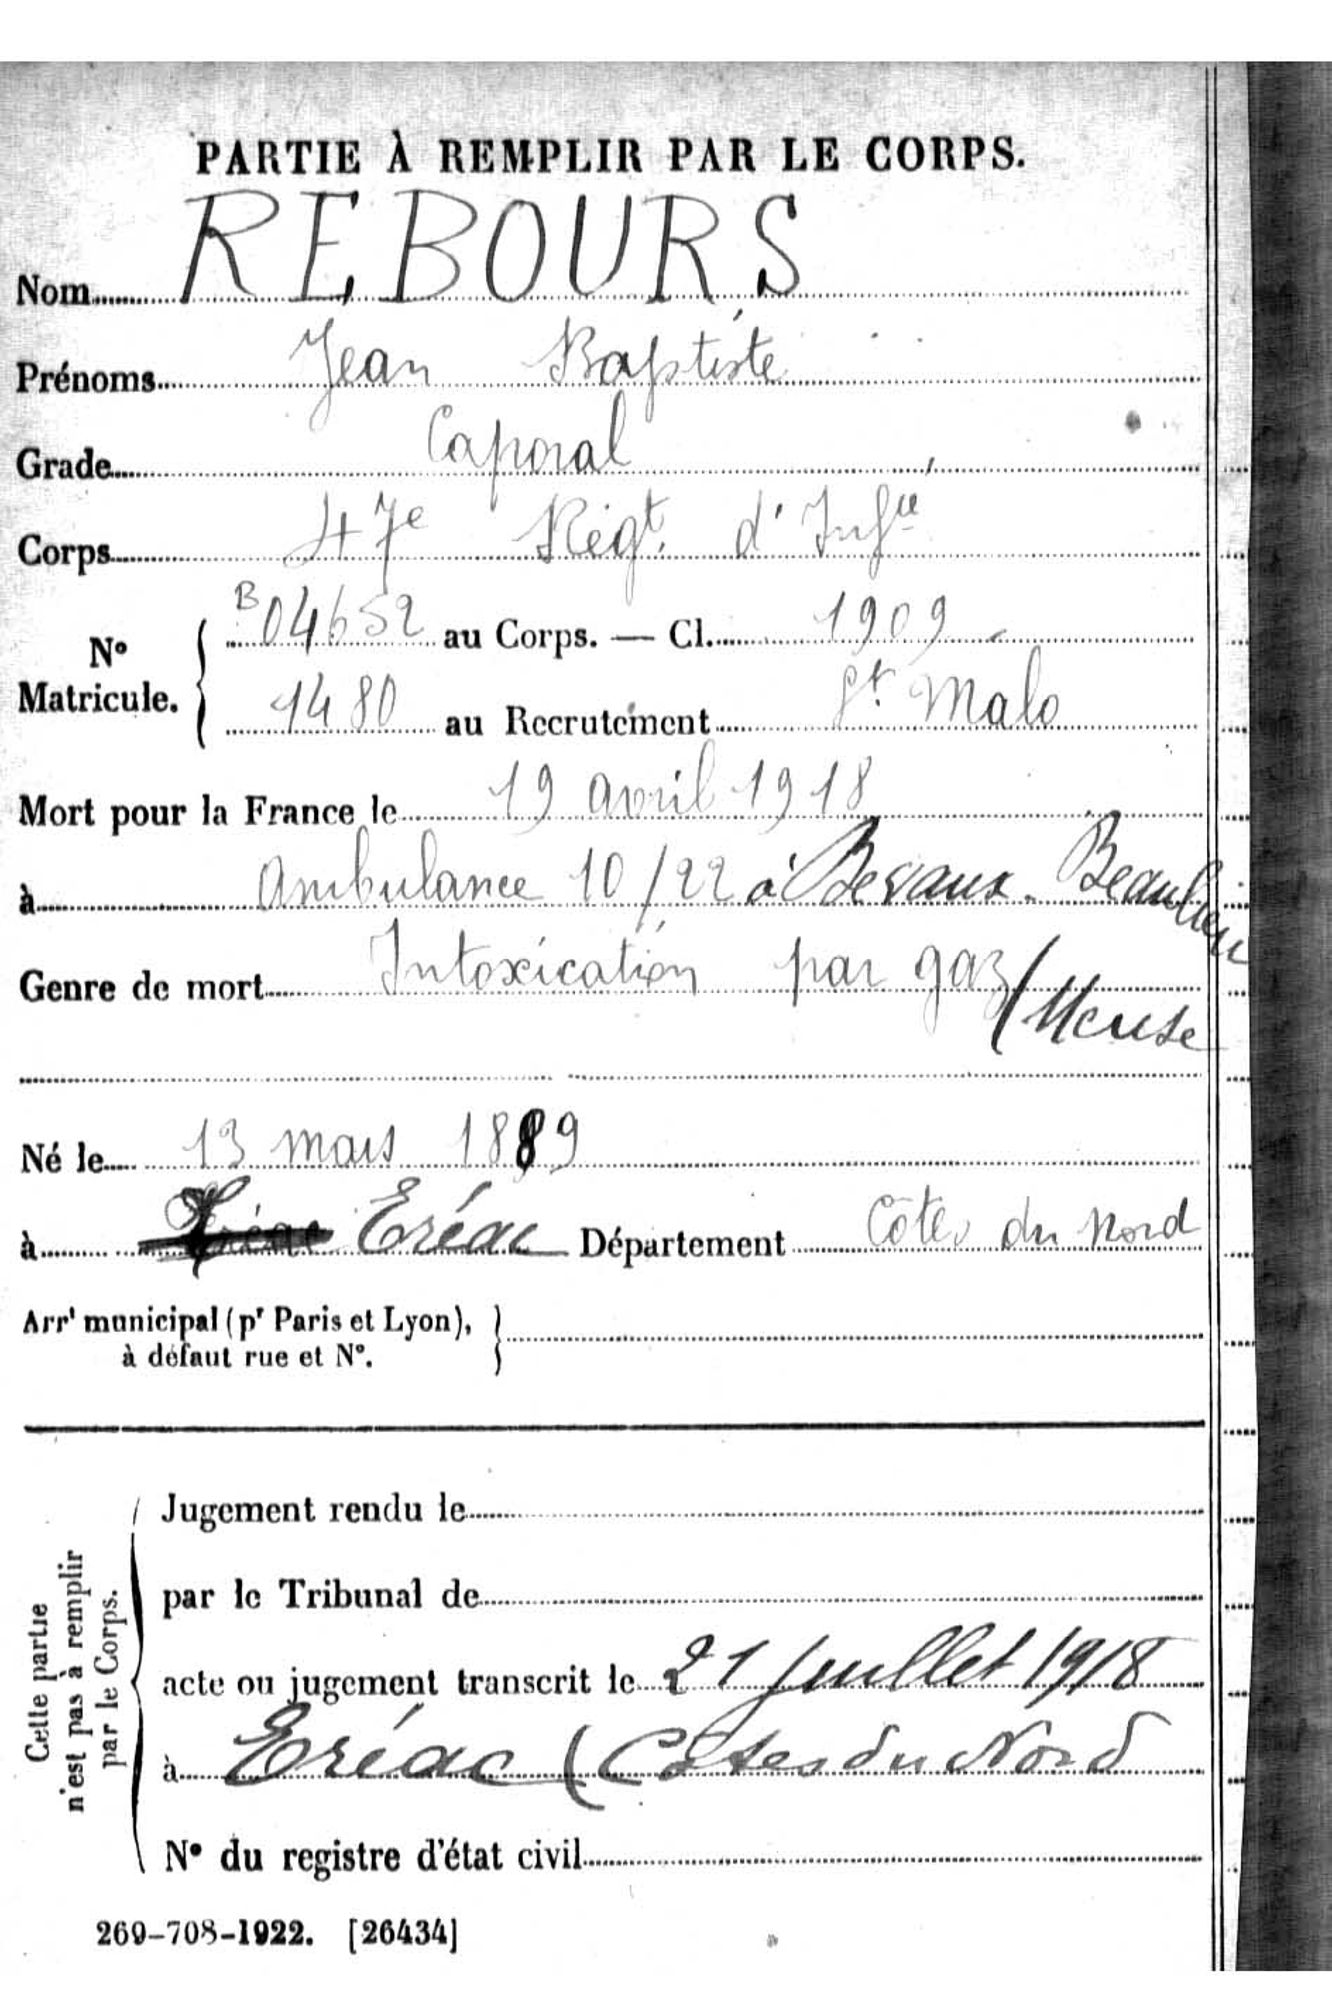 PARTIE À REMPLIR PAR LE CORPS.
Nom REBOURS
Prénoms Jean Baptiste
Grade Caporal
Corps 47e Régt. d'Infie
No Matricule. B04652 au Corps. — Cl. 1909
1480 au Recrutement St. Malo
Mort pour la France le 19 avril 1918
à Ambulance 10/22 à Bevaux. Beaulieu
Genre de mort Intoxication par gaz (Meuse
Né le 13 mars 1889
à Eréac Département Côtes du Nord
Arrt municipal (pr Paris et Lyon),
à défaut rue et No.
Cette partie
n'est pas à remplir
par le Corps.
Jugement rendu le
par le Tribunal de
acte ou jugement transcrit le 21 Juillet 1918
à Eréac (Côtes du Nord
No du registre d'état civil
269-708-1922. [26434]